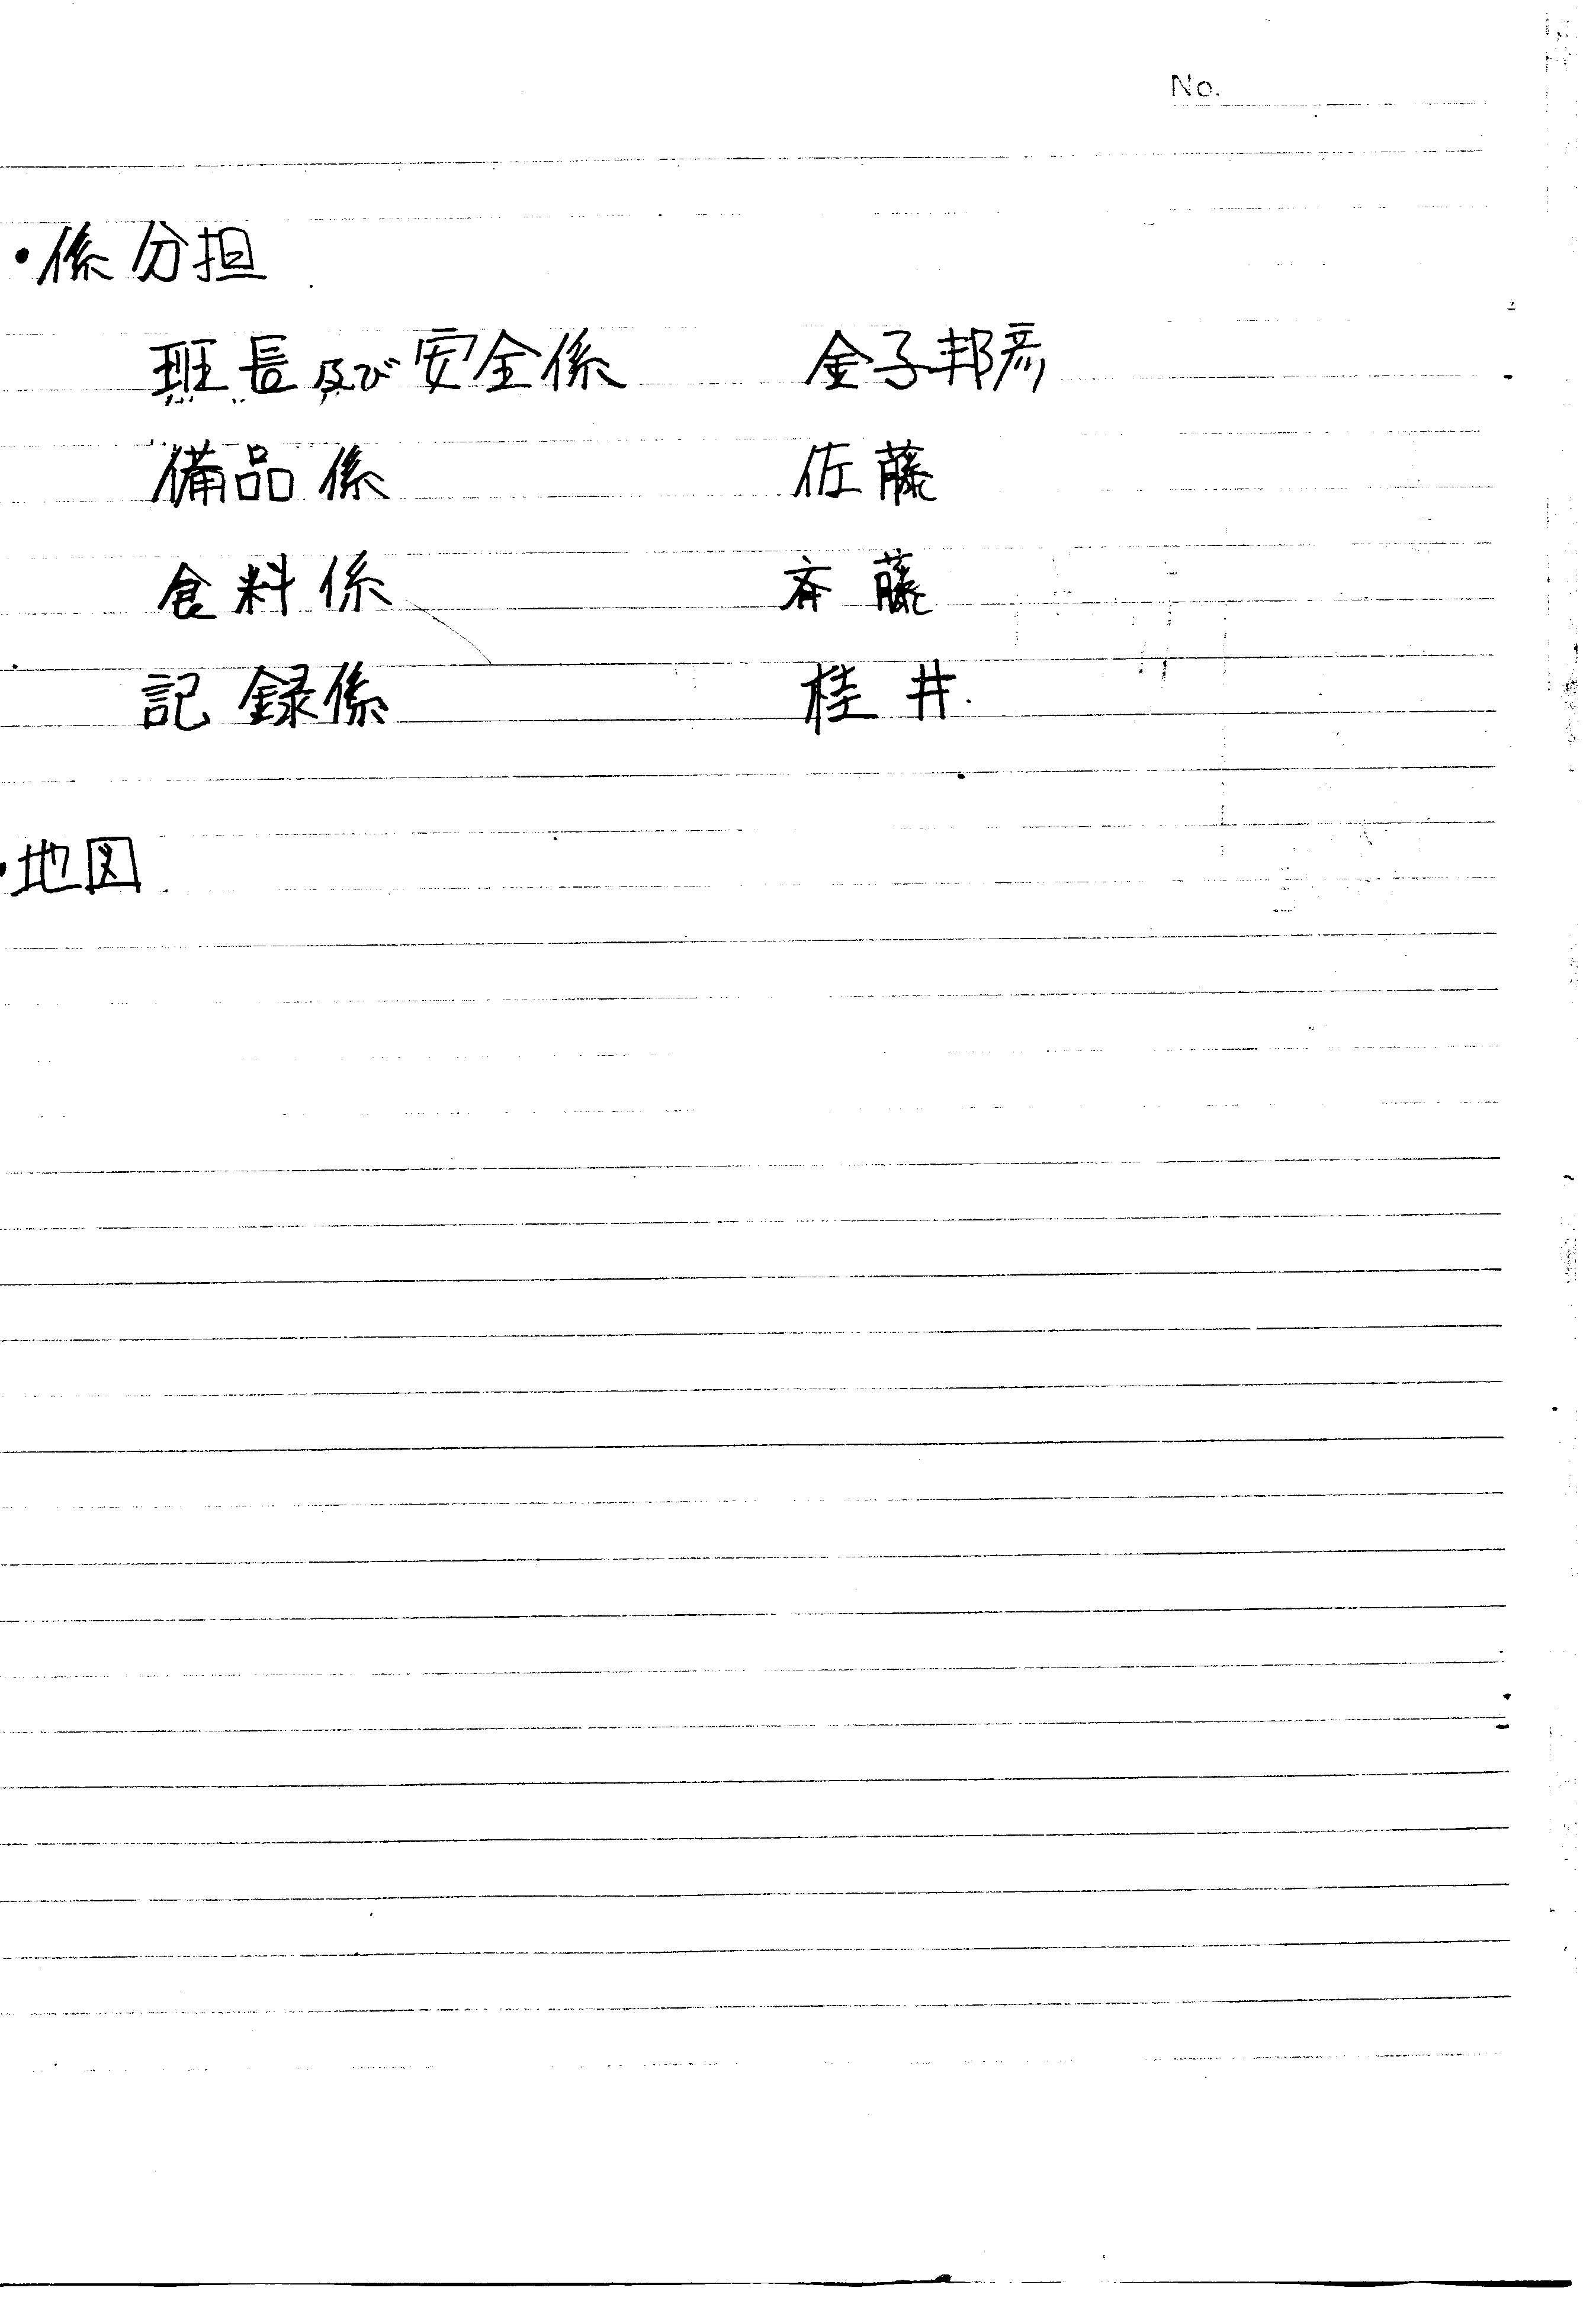 No.
・係分担
班長及び安全係 金子邦彦
備品係 佐藤
食料係 斉藤
記録係 桂井.
・地図